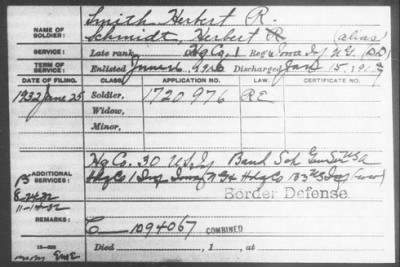 NAME OF SOLDIER: Smith Herbert R.
Schmidt, Herbert R (alias)
SERVICE: Late rank, Hq Co, 1 Reg't Inf N.G.
TERM OF SERVICE: Enlisted June 1916 Discharged Jan 15, 191
DATE OF FILING. CLASS. APPLICATION NO. LAW. CERTIFICATE NO.
1932 June 25 Soldier, 1720976 RE
Widow,
Minor,
ADDITIONAL SERVICES: Hq Co. 30 U.S. Inf Band Sch
Hdq Co 1 Inf Hdq Co 133 US Inf
B
8-24-32
11-14-32
Border Defense.
REMARKS: C 1094067 COMBINED
Died , 1 , at